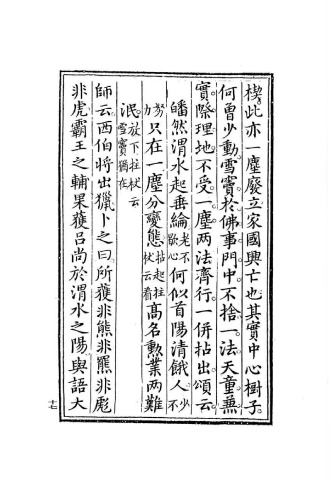 楔此亦一塵廢立家國興亡也其實中心樹子
何曾少動雪竇於佛事門中不捨一法天童兼
實際理地不受一塵两法濟行一併拈出頌云
皤然渭水起垂綸老不歇心何似首陽清餓人少不
努力只在一塵分變態拈起拄杖云看高名勲業两難
泯放下拄杖云雪竇猶在
師云西伯將出獵卜之曰所獲非熊非羆非彪
非虎霸王之輔果獲吕尚於渭水之陽與語大
十七